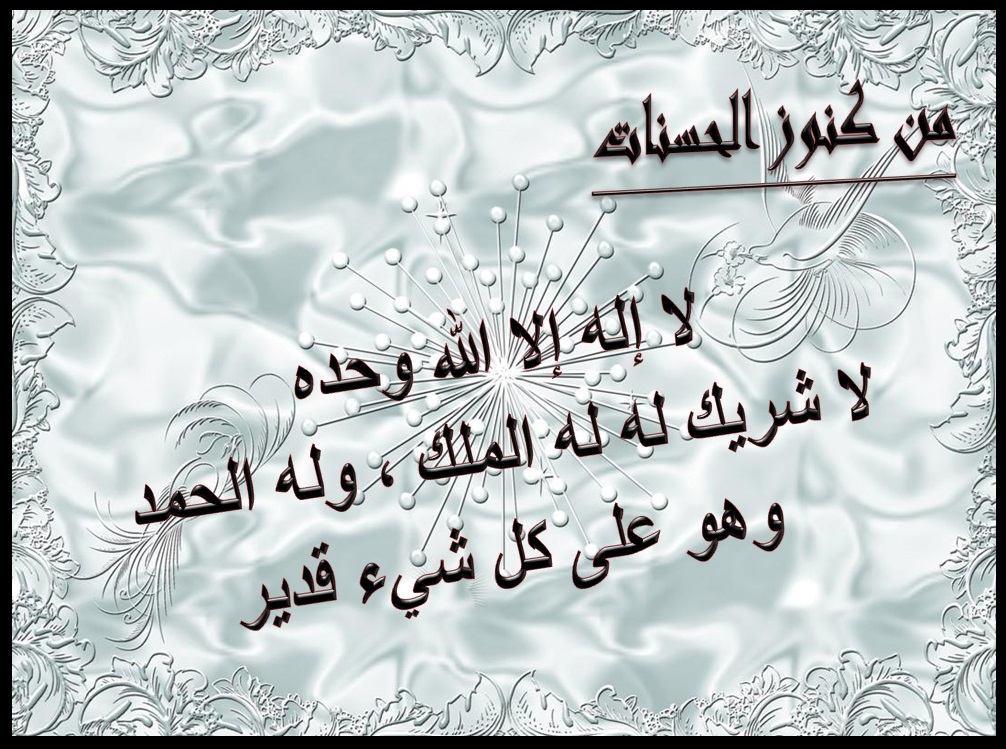 من كنوز الحسنات
لا إله إلا الله وحده
لا شريك له له الملك ، وله الحمد
و هو على كل شيء قدير